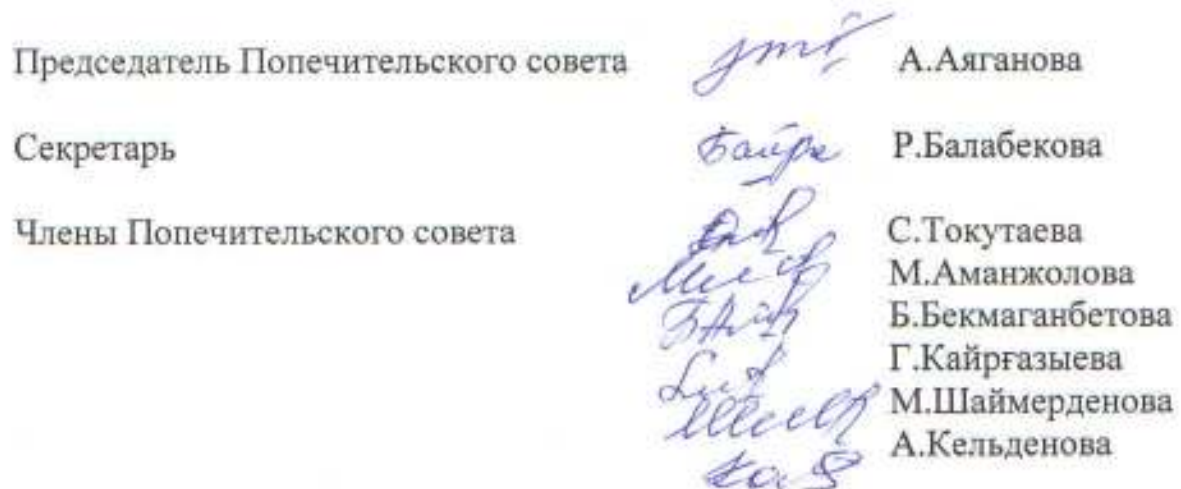 Председатель Попечительского совета А.Аяганова
Секретарь Р.Балабекова
Члены Попечительского совета С.Токутаева
М.Аманжолова
Б.Бекмаганбетова
Г.Кайрғазыева
М.Шаймерденова
А.Кельденова